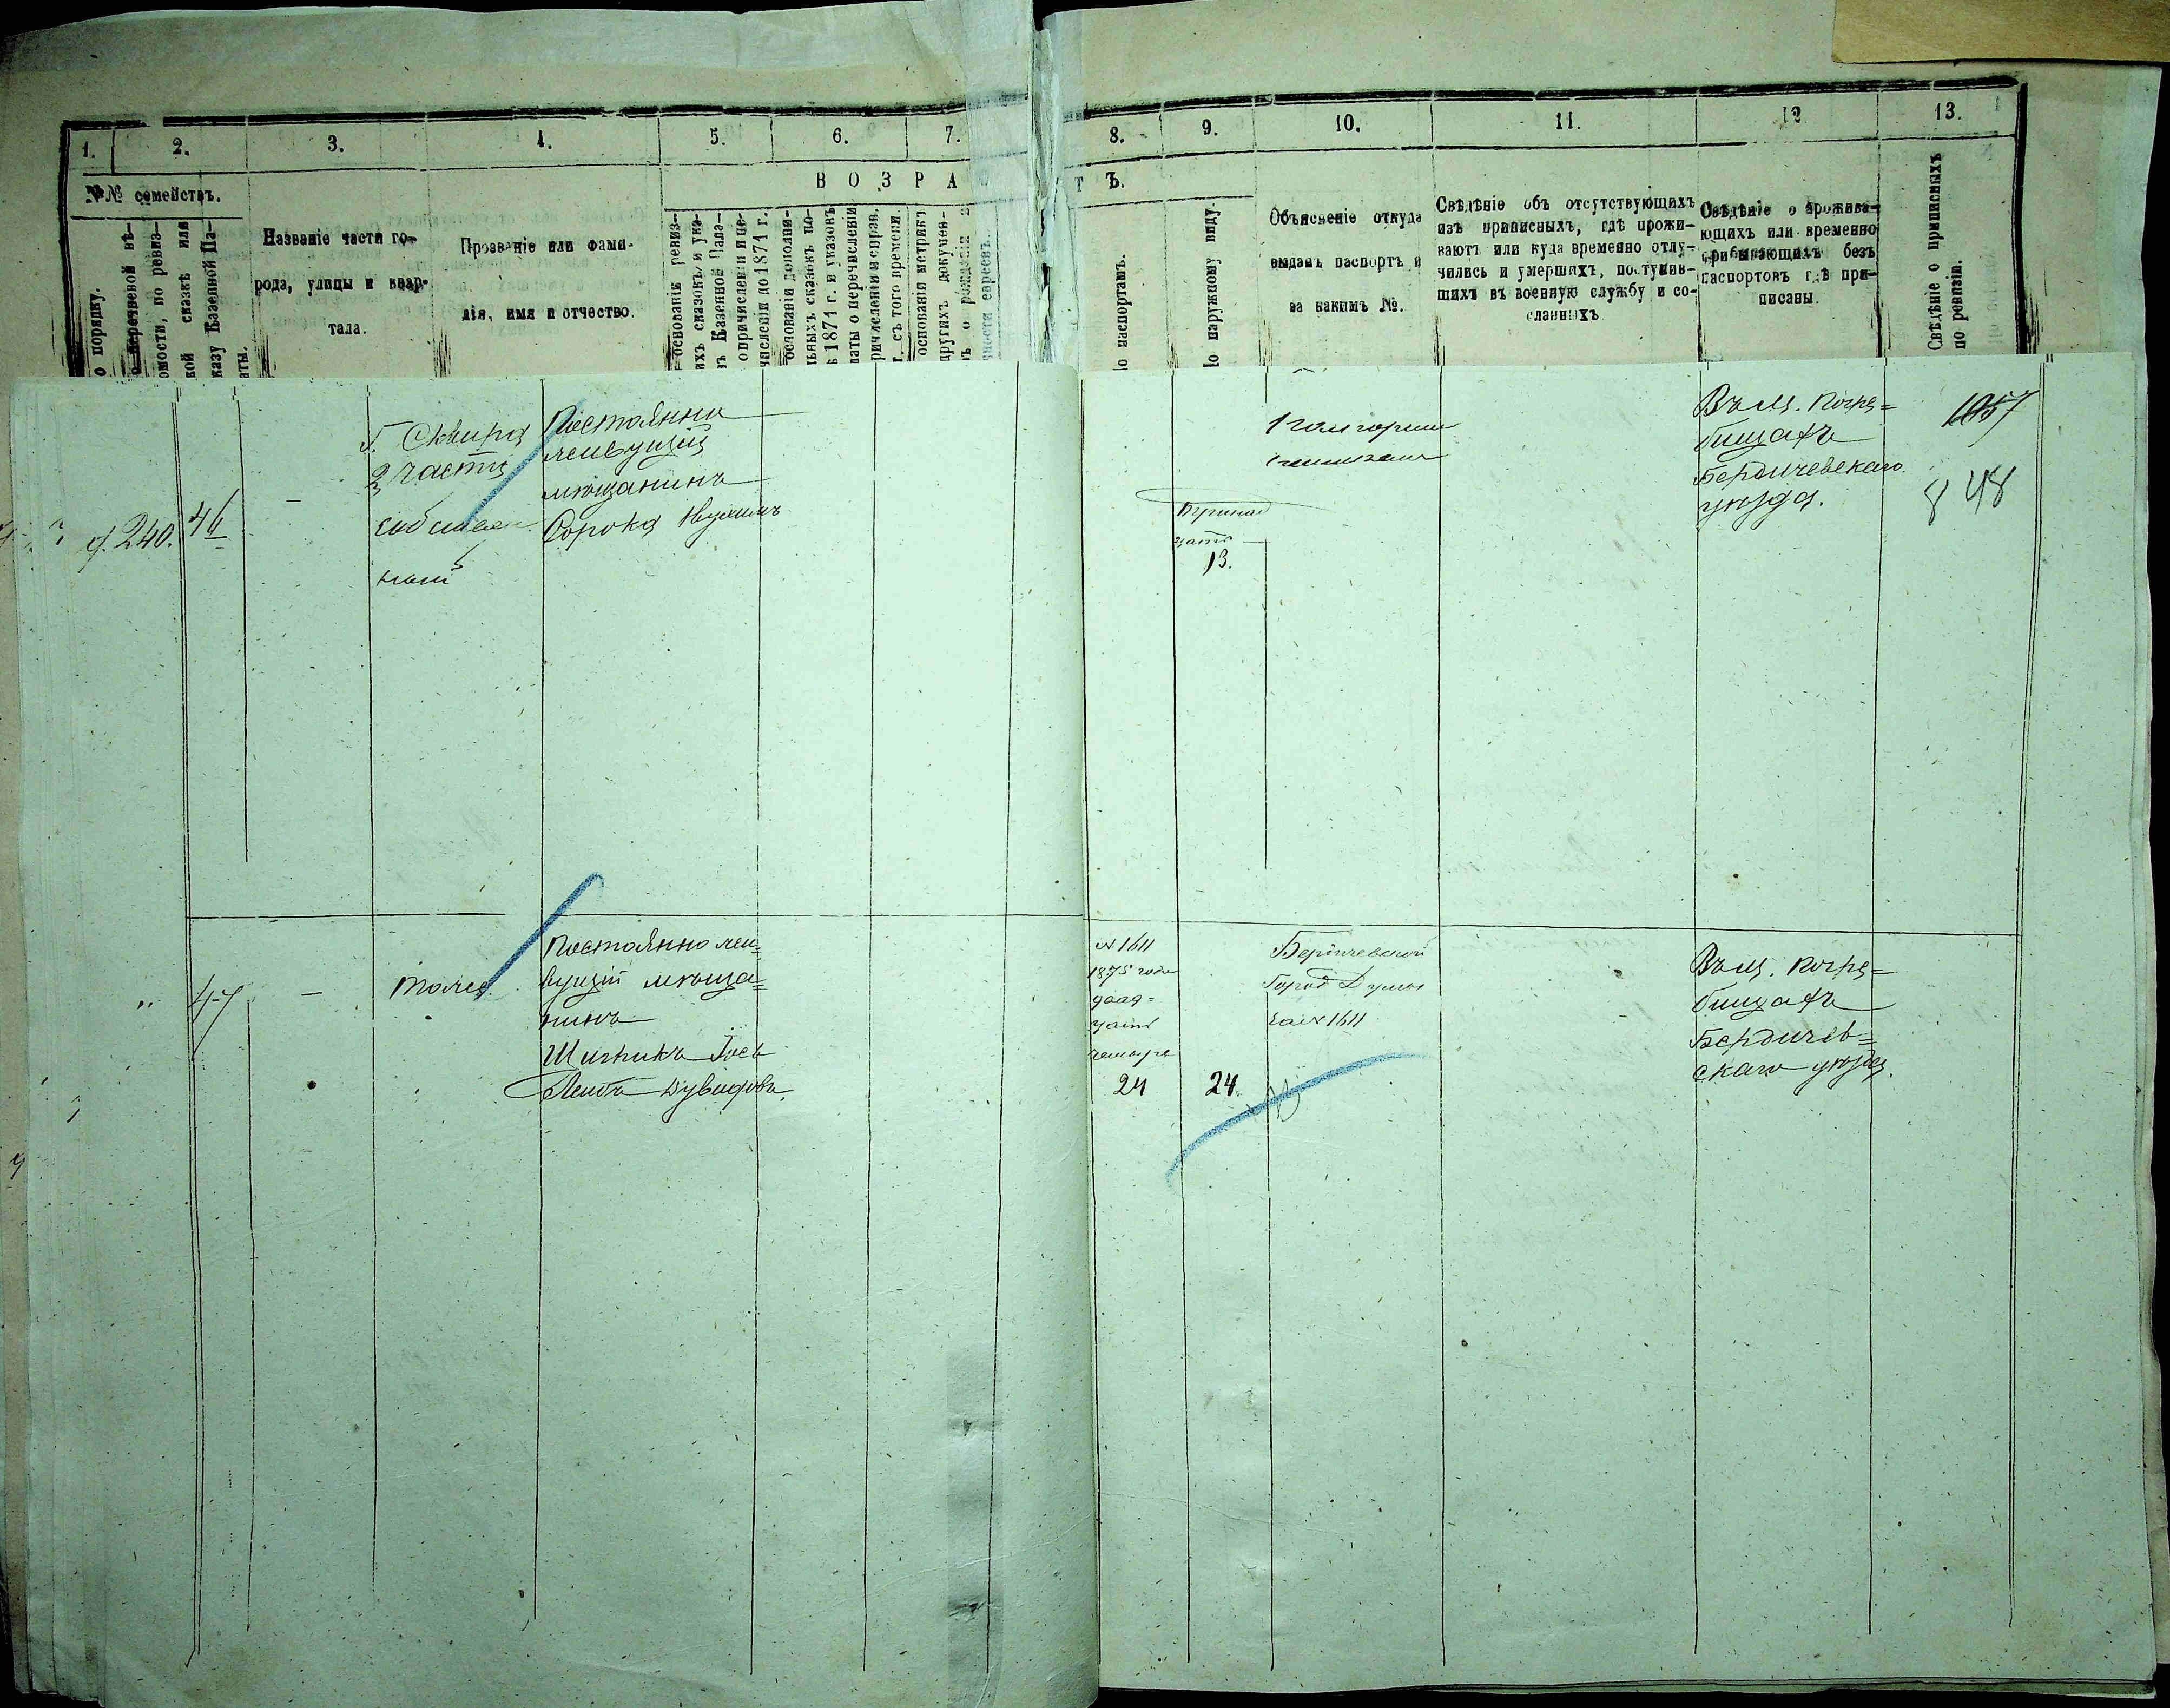 1.
2.
3.
4.
5.
6.
7.
8.
9.
10.
11.
12
13.
№№ семействъ.
ВОЗРА
ТЪ.
о порядку.
перечневой вѣ-
омости, по ревиз-
кой сказкѣ или
казу Казенной Па-
аты.
Названіе части го-
рода, улицы и квар-
тала.
Прозваніе или фами-
лія, имя и отчество.
основаніи ревиз-
ихъ сказокъ и ука-
въ Казенной Пала-
о причисленіи и пе-
численіи до 1871 г.
основаніи дополни-
льныхъ сказокъ по-
ѣ 1871 г. и указовъ
латы о перечисленіи
ричисленіи и справ.
г. съ того времени.
основаніи метрикъ
другихъ докумен-
ъ о рожденіи
ности евреевъ.
о паспортамъ.
о наружному виду.
Объясненіе откуда
выданъ паспортъ и
за какимъ №.
Свѣдѣніе объ отсутствующихъ
изъ приписныхъ, гдѣ прожи-
ваютъ или куда временно отлу-
чились и умершихъ, поступив-
шихъ въ военную службу и со-
сланныхъ
Свѣдѣніе о прожива-
ющихъ или временно
прибывающихъ безъ
паспортовъ гдѣ при-
писаны.
Свѣдѣніе о приписныхъ
по ревизіи.
240.
46
—
Г. Сквира
2 части
Постоянно
живущій
мѣщанинъ
Сорока Нухимъ
Тринад
цать
13.
Въ м. Погре=
бищахъ
Бердичевскаго
уѣзда.
1057
848
"
47
—
тоже
Постоянно жи=
вущій мѣща=
нинъ
Шигникъ Іось
Лейбъ Дувидовъ
№ 1611
1875 года
двад=
цать
четыре
24
24.
Бердичевской
Город Думы
за № 1611
Въ м. Погре=
бищахъ
Бердичев=
скаго уѣзда.